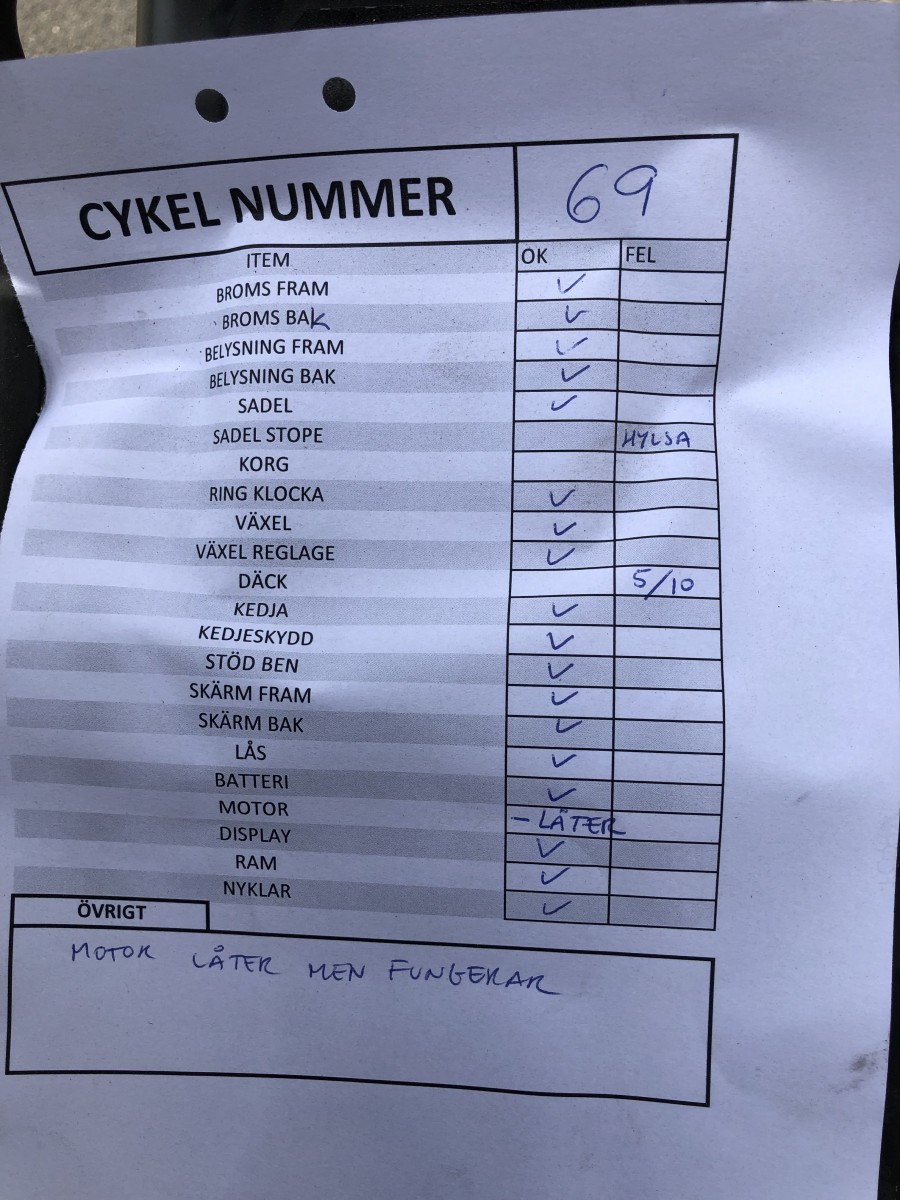 CYKEL NUMMER 69
ITEM OK FEL
BROMS FRAM ✓
BROMS BAK ✓
BELYSNING FRAM ✓
BELYSNING BAK ✓
SADEL ✓
SADEL STOPE HYLSA
KORG
RING KLOCKA ✓
VÄXEL ✓
VÄXEL REGLAGE ✓
DÄCK 5/10
KEDJA ✓
KEDJESKYDD ✓
STÖD BEN ✓
SKÄRM FRAM ✓
SKÄRM BAK ✓
LÅS ✓
BATTERI ✓
MOTOR – LÅTER
DISPLAY ✓
RAM ✓
NYKLAR ✓
ÖVRIGT
MOTOR LÅTER MEN FUNGERAR